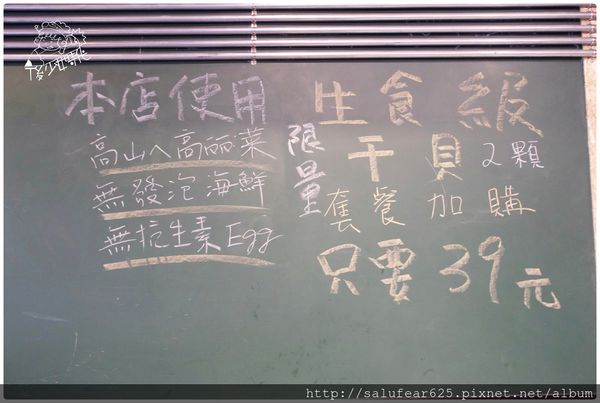 本店使用
高山ㄟ高丽菜
無發泡海鮮
無抗生素Egg
限量
生食級
干貝2顆
套餐加購
只要39元
http://salufear625.pixnet.net/album